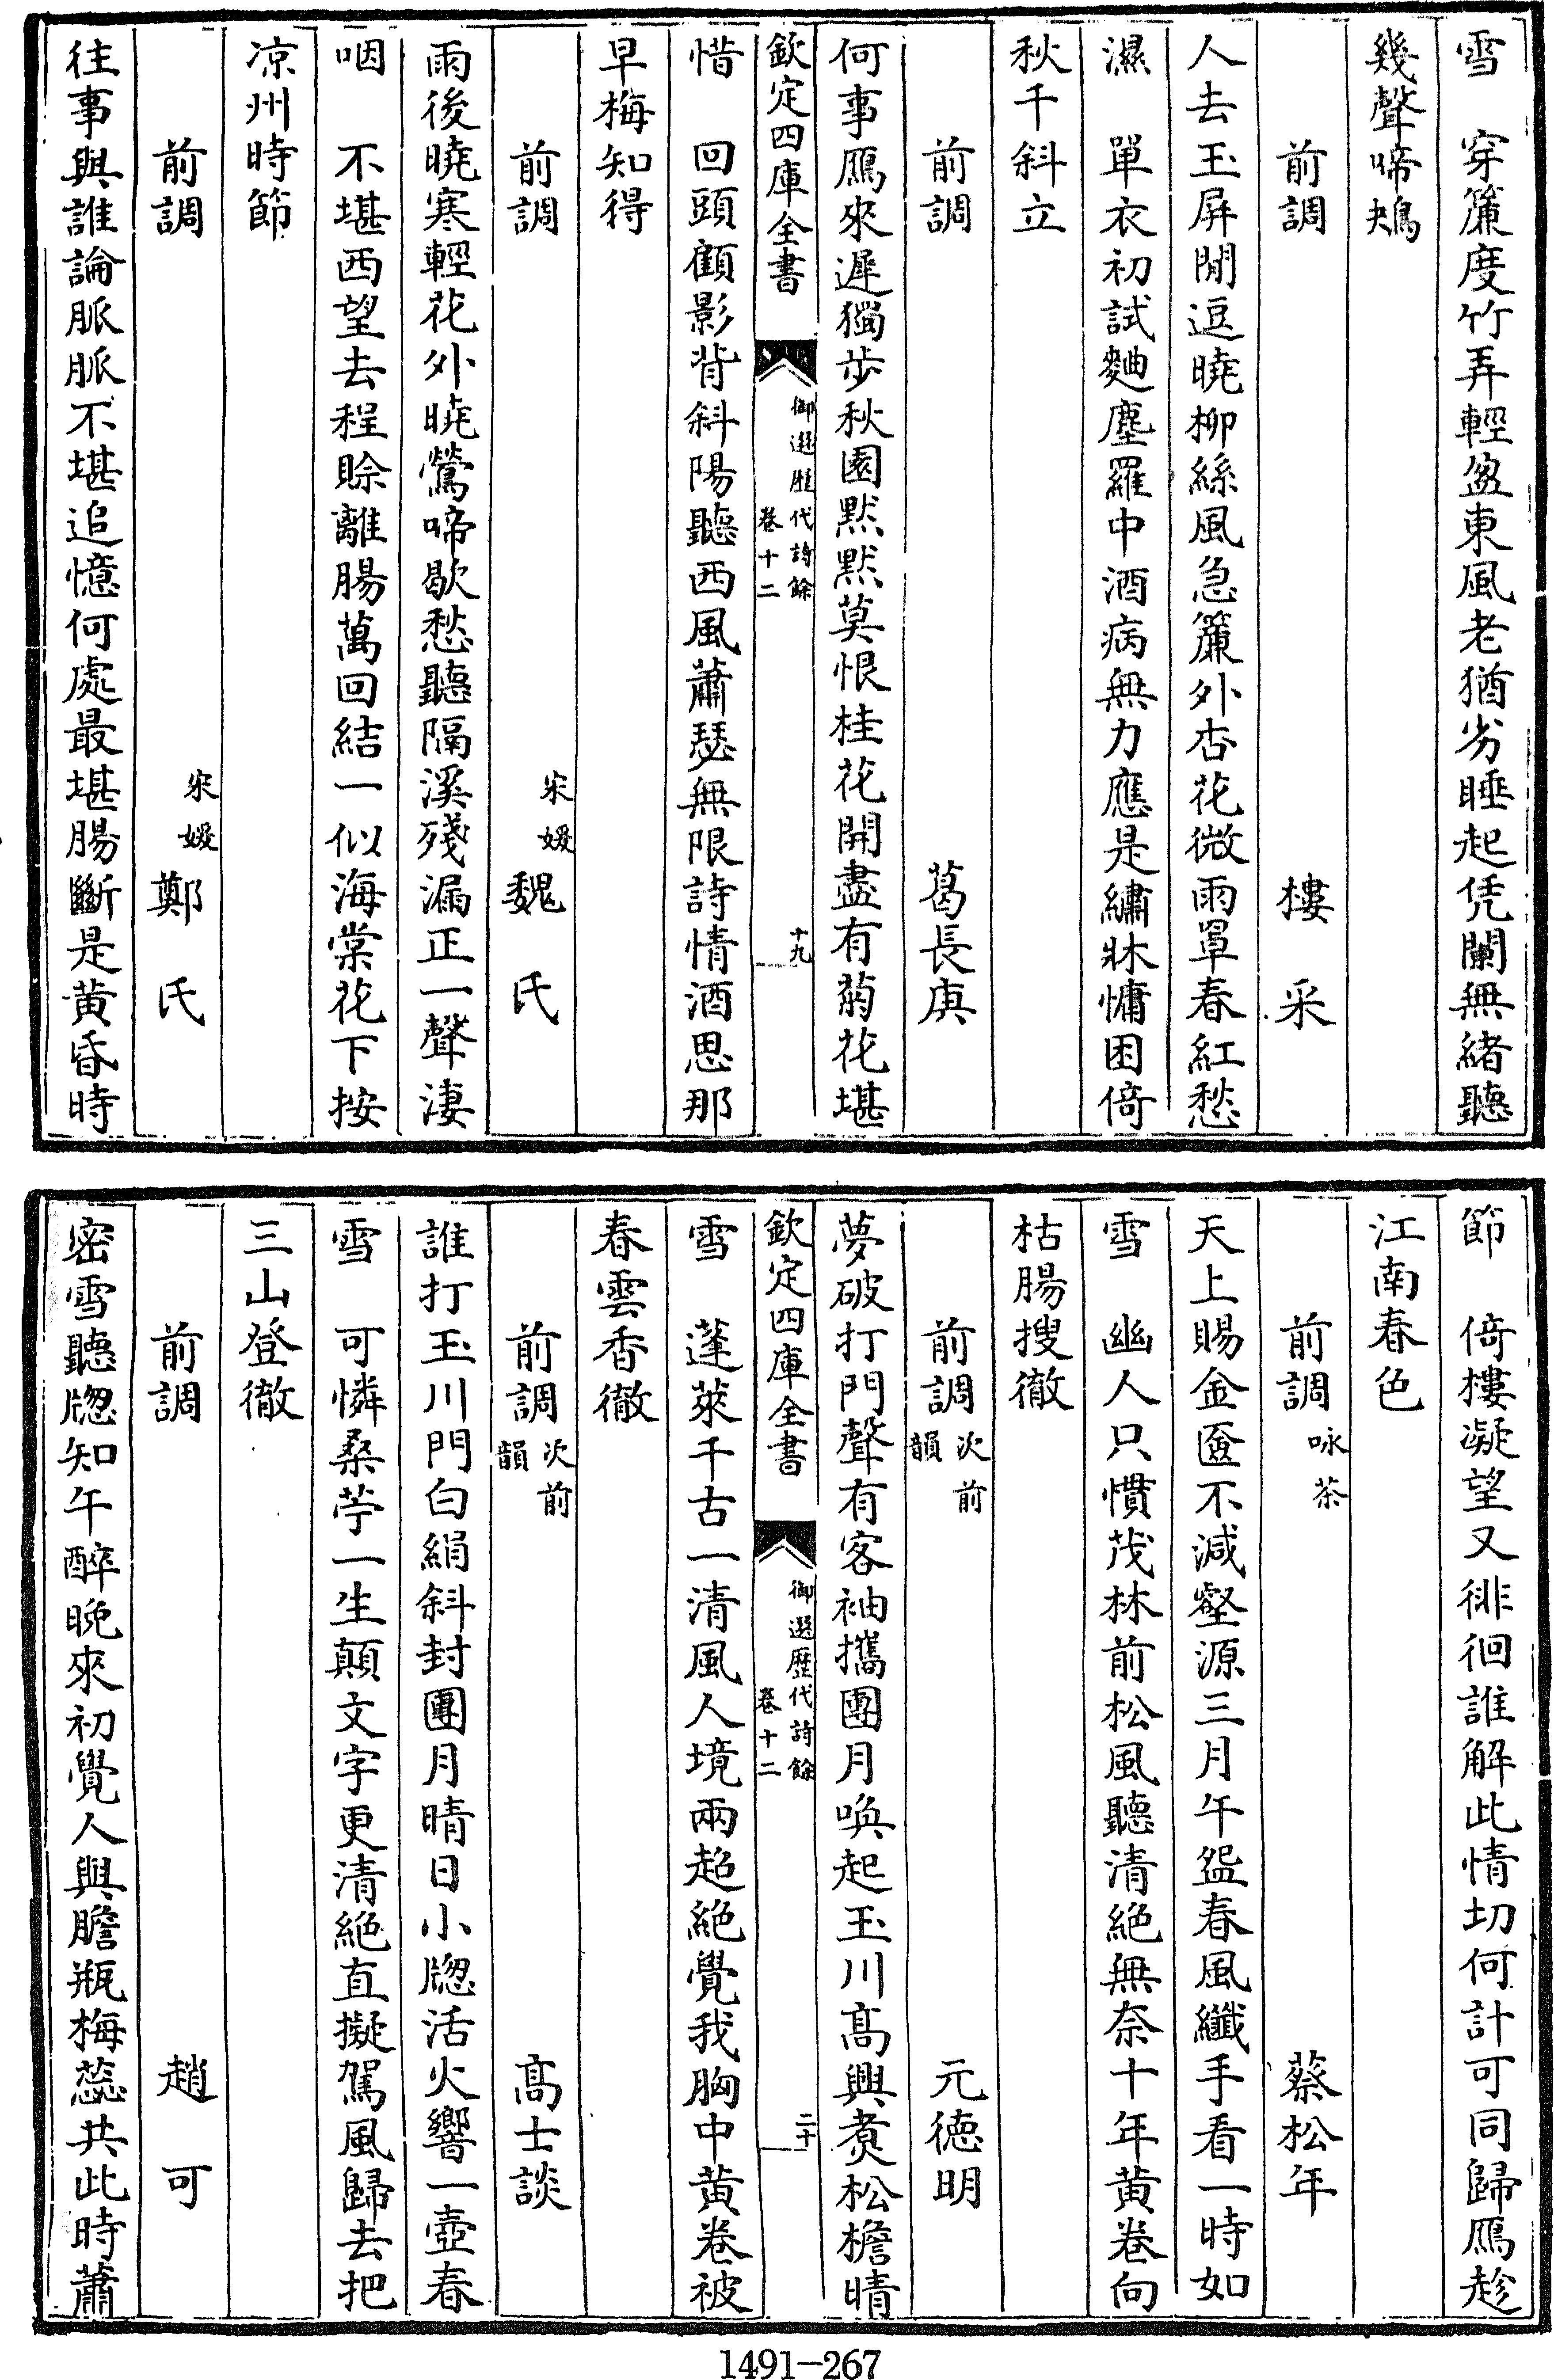 雪　穿簾度竹弄輕盈東風老猶劣睡起凭闌無緒聽
幾聲啼鴂
前調　樓采
人去玉屏閒逗曉柳絲風急簾外杏花微雨罩春紅愁
濕　單衣初試麴塵羅中酒病無力應是繡牀慵困倚
秋千斜立
前調　葛長庚
何事鴈來遲獨步秋園默默莫恨桂花開盡有菊花堪
欽定四庫全書　御選歷代詩餘　卷十二　十九
惜　回頭顧影背斜陽聽西風蕭瑟無限詩情酒思那
早梅知得
前調　宋媛　魏氏
雨後曉寒輕花外曉鶯啼歇愁聽隔溪殘漏正一聲淒
咽　不堪西望去程賒離腸萬回結一似海棠花下按
凉州時節
前調　宋媛　鄭氏
往事與誰論脈脈不堪追憶何處最堪腸斷是黃昏時
節　倚樓凝望又徘徊誰解此情切何計可同歸鴈趁
江南春色
前調　咏茶　蔡松年
天上賜金奩不減壑源三月午盌春風纖手看一時如
雪　幽人只慣茂林前松風聽清絕無奈十年黃卷向
枯腸搜徹
前調　次前韻　元德明
夢破打門聲有客袖攜團月喚起玉川高興煑松檐晴
欽定四庫全書　御選歷代詩餘　卷十二　二十
雪　蓬萊千古一清風人境兩超絕覺我胸中黃卷被
春雲香徹
前調　次前韻　高士談
誰打玉川門白絹斜封團月晴日小牕活火響一壺春
雪　可憐桑苧一生顛文字更清絕直擬駕風歸去把
三山登徹
前調　趙可
密雪聽牕知午醉晚來初覺人與膽瓶梅蕊共此時蕭
1491-267